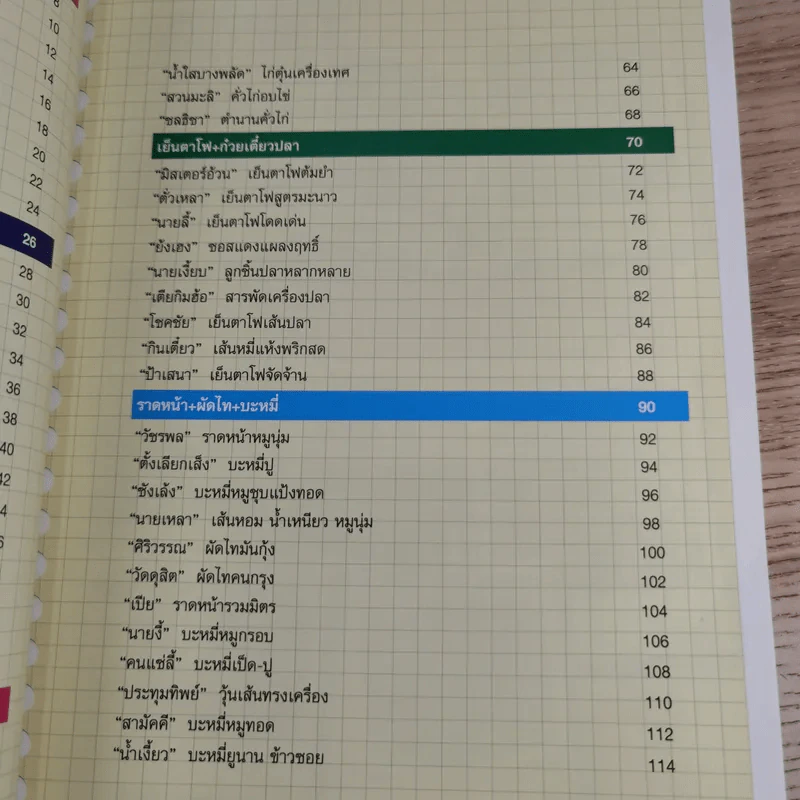 8
10
12
14
16
18
20
22
24
26
28
30
32
34
36
38
40
42
4
6
"น้ำใสบางพลัด" ไก่ตุ๋นเครื่องเทศ 64
"สวนมะลิ" คั่วไก่อบไข่ 66
"ชลธิชา" ตำนานคั่วไก่ 68
เย็นตาโฟ+ก๋วยเตี๋ยวปลา 70
"มิสเตอร์อ้วน" เย็นตาโฟต้มยำ 72
"ตั่วเหลา" เย็นตาโฟสูตรมะนาว 74
"นายลี้" เย็นตาโฟโดดเด่น 76
"ย้งเฮง" ซอสแดงแผลงฤทธิ์ 78
"นายเงี้ยบ" ลูกชิ้นปลาหลากหลาย 80
"เตียกิมฮ้อ" สารพัดเครื่องปลา 82
"โชคชัย" เย็นตาโฟเส้นปลา 84
"กินเตี๋ยว" เส้นหมี่แห้งพริกสด 86
"ป้าเสนา" เย็นตาโฟจัดจ้าน 88
ราดหน้า+ผัดไท+บะหมี่ 90
"วัชรพล" ราดหน้าหมูนุ่ม 92
"ตั้งเลียกเส็ง" บะหมี่ปู 94
"ซังเล้ง" บะหมี่หมูชุบแป้งทอด 96
"นายเหลา" เส้นหอม น้ำเหนียว หมูนุ่ม 98
"ศิริวรรณ" ผัดไทมันกุ้ง 100
"วัดดุสิต" ผัดไทคนกรุง 102
"เปีย" ราดหน้ารวมมิตร 104
"นายงี้" บะหมี่หมูกรอบ 106
"คนแซ่ลี้" บะหมี่เป็ด-ปู 108
"ประทุมทิพย์" วุ้นเส้นทรงเครื่อง 110
"สามัคคี" บะหมี่หมูทอด 112
"น้ำเงี้ยว" บะหมี่ยูนาน ข้าวซอย 114